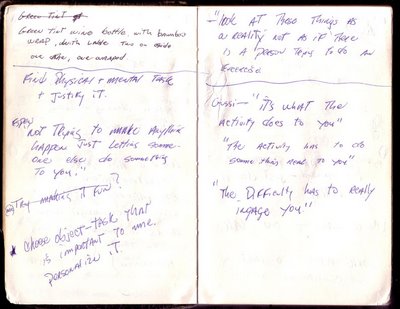 Green Tint
Green Tint wine Bottle, with Bamboo
wrap, with
one side, one unwrapped.
Find Physical + mental Task
+ Justify iT.
"NOT Trying to make Anything
happen Just Letting Some-
one else do something
to you."
Try making iT fun?
* Choose object-task that
is important to me.
Personalize iT.
- "look AT These Things As
a reality not as if There
is A person Trying To do An
Exercise
Gussi - "iTs what The
Activity does To you"
"The Activity has To do
some thing to you"
"The Difficulty has To Really
ingage You."